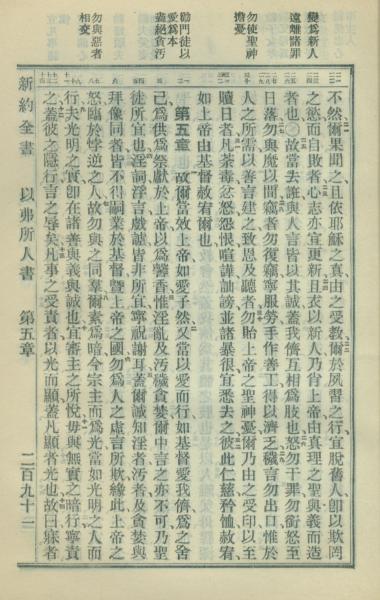 變爲新人
遠離諸罪
勿使聖神
擔憂
勸門徒以
愛爲本
盡絕貪污
勿與惡者
相交
不然爾果聞之且依耶穌之眞由之受敎爾於夙習之行宜脫舊人卽以欺罔
之慾而自敗者心志亦宜更新且衣以新人乃肖上帝由眞理之聖與義而造
者也〇故當去誑與人言皆以其誠蓋我儕互相爲肢也怒勿干罪勿銜怒至
日落勿與魔以間竊者勿復竊寧服勞手作善工得以濟乏穢言勿出口惟於
人之所需以善言建之致恩及聽者勿貽上帝之聖神憂爾乃由之受印以至
贖日者凡荼毒忿怒怨恨喧譁訕謗並諸暴很宜悉去之彼此仁慈矜恤赦宥
如上帝由基督赦宥爾也
第五章　故爾當效上帝如愛子然又當以愛而行如基督愛我儕爲之舍
己爲供爲祭獻於上帝以爲馨香惟淫亂及污穢貪婪爾中言之亦不可乃聖
徒所宜也淫詞浮言戲謔皆非所宜寧祝謝耳蓋爾誠知淫者污者及貪婪與
拜像同者皆不得嗣業於基督曁上帝之國勿爲人之虛言所欺緣此上帝之
怒臨於悖逆之人故勿與之同羣爾素爲暗今宗主而爲光當如光明之人而
行夫光明之實卽在諸善與義與誠也宜審主之所悅毋與無實之暗行寧責
之蓋彼之隱行言之辱矣凡事之受責者以光而顯蓋凡顯者光也故曰寐者
新約全書　以弗所人書　第五章　二百九十二